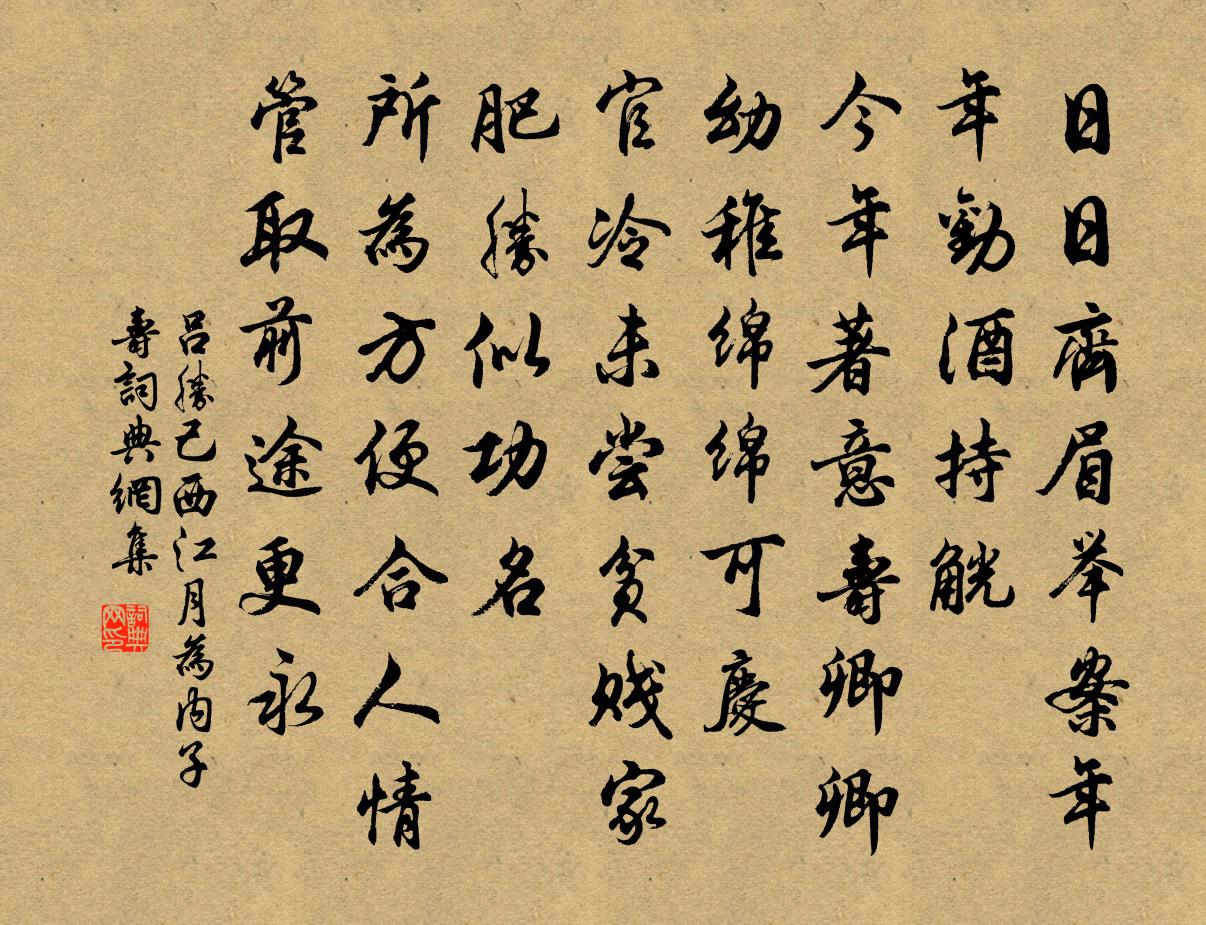 日日齊眉举案年
年勸酒持觥
今年著意壽卿卿
幼稚綿綿可慶
官冷未尝贫贱家
肥勝似功名
所為方便合人情
管取前途更永
呂勝己西江月為内子
壽詞典網集
詞典网印